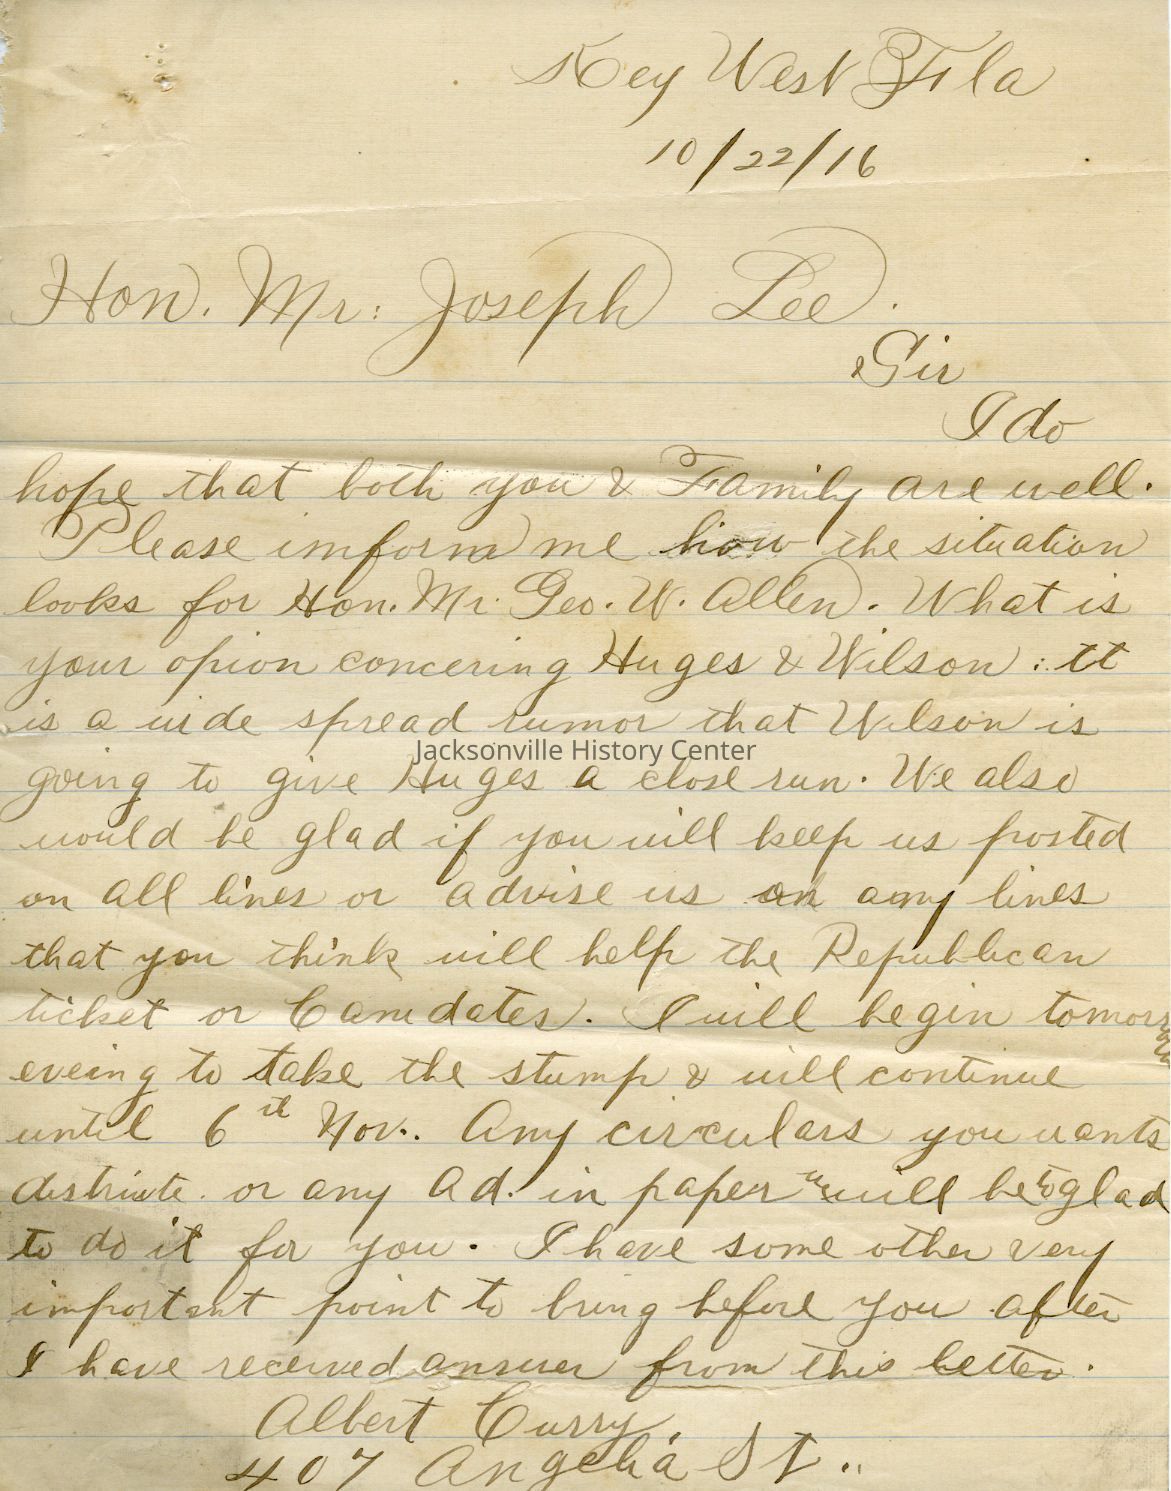 Key West Fla
10/22/16
Hon. Mr: Joseph Lee.
Sir
I do
hope that both you & Family are well.
Please imform me how the situation
looks for Hon. Mr. Geo. W. Allen. What is
your opion concering Huges & Wilson : It
is a wide spread rumor that Wilson is
Jacksonville History Center
going to give Huges a close run. We also
would be glad if you will keep us posted
on all lines or advise us on any lines
that you think will help the Republican
ticket or Canidates. I will begin tomorrow
eveing to take the stump & will continue
until 6th Nov. Any circulars you wants
or any Ad. in paper we will be to glad
to do it for you. I have some other very
important point to bring before you after
I have received answer from this letter.
Albert Curry,
407 Angela St..